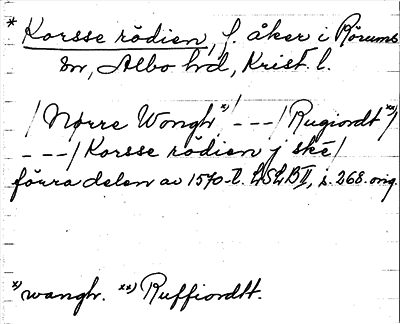 * Korsse rödien, f. åker i Rörums
sn, Albo hd, Krist. l.
/Nørre Wongh *)/ - - - /Rugiordt **)/
- - - / Korsse rödien j skĕ /
förra delen av 1570-t. LSLB II, s. 268. orig.
*) wangh. **) Ruffiordtt.